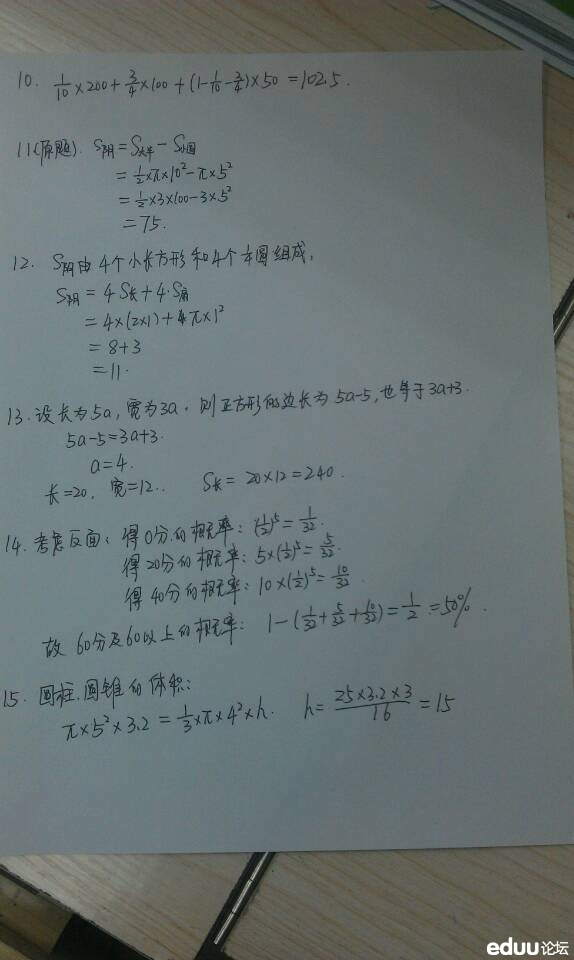 10. 1/10×200+3/4×100+(1-1/10-3/4)×50=102.5.
11(原题). S阴=S大半-S小圆
=1/2×π×10²-π×5²
=1/2×3×100-3×5²
=75.
12. S阴由4个小长方形和4个圆组成,
S阴=4S长+4·S扇
=4×(2×1)+π×1²
=8+3
=11.
13.设长为5a,宽为3a.则正方形的边长为5a-5,也等于3a+3.
5a-5=3a+3.
a=4.
长=20,宽=12. S长=20×12=240.
14.考虑反面:得0分的概率:(1/2)⁵=1/32.
得20分的概率:5×(1/2)⁵=5/32.
得40分的概率:10×(1/2)⁵=10/32.
故60分及60以上的概率:1-(1/32+5/32+10/32)=1/2=50%.
15.圆柱.圆锥的体积:
π×5²×3.2=1/3×π×4²×h. h=25×3.2×3/16=15
eduu论坛